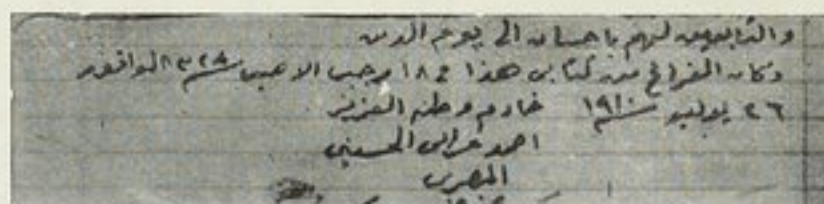 والتابعين لهم باحسان الى يوم الدين
وكان الفراغ من كتابى هذا فى ١٨ رجب الاصب سنة ١٣٢٨ الموافق
٢٦ يوليو سنة ١٩١٠ خادم وطنه العزيز
احمد الحسينى
المصرى